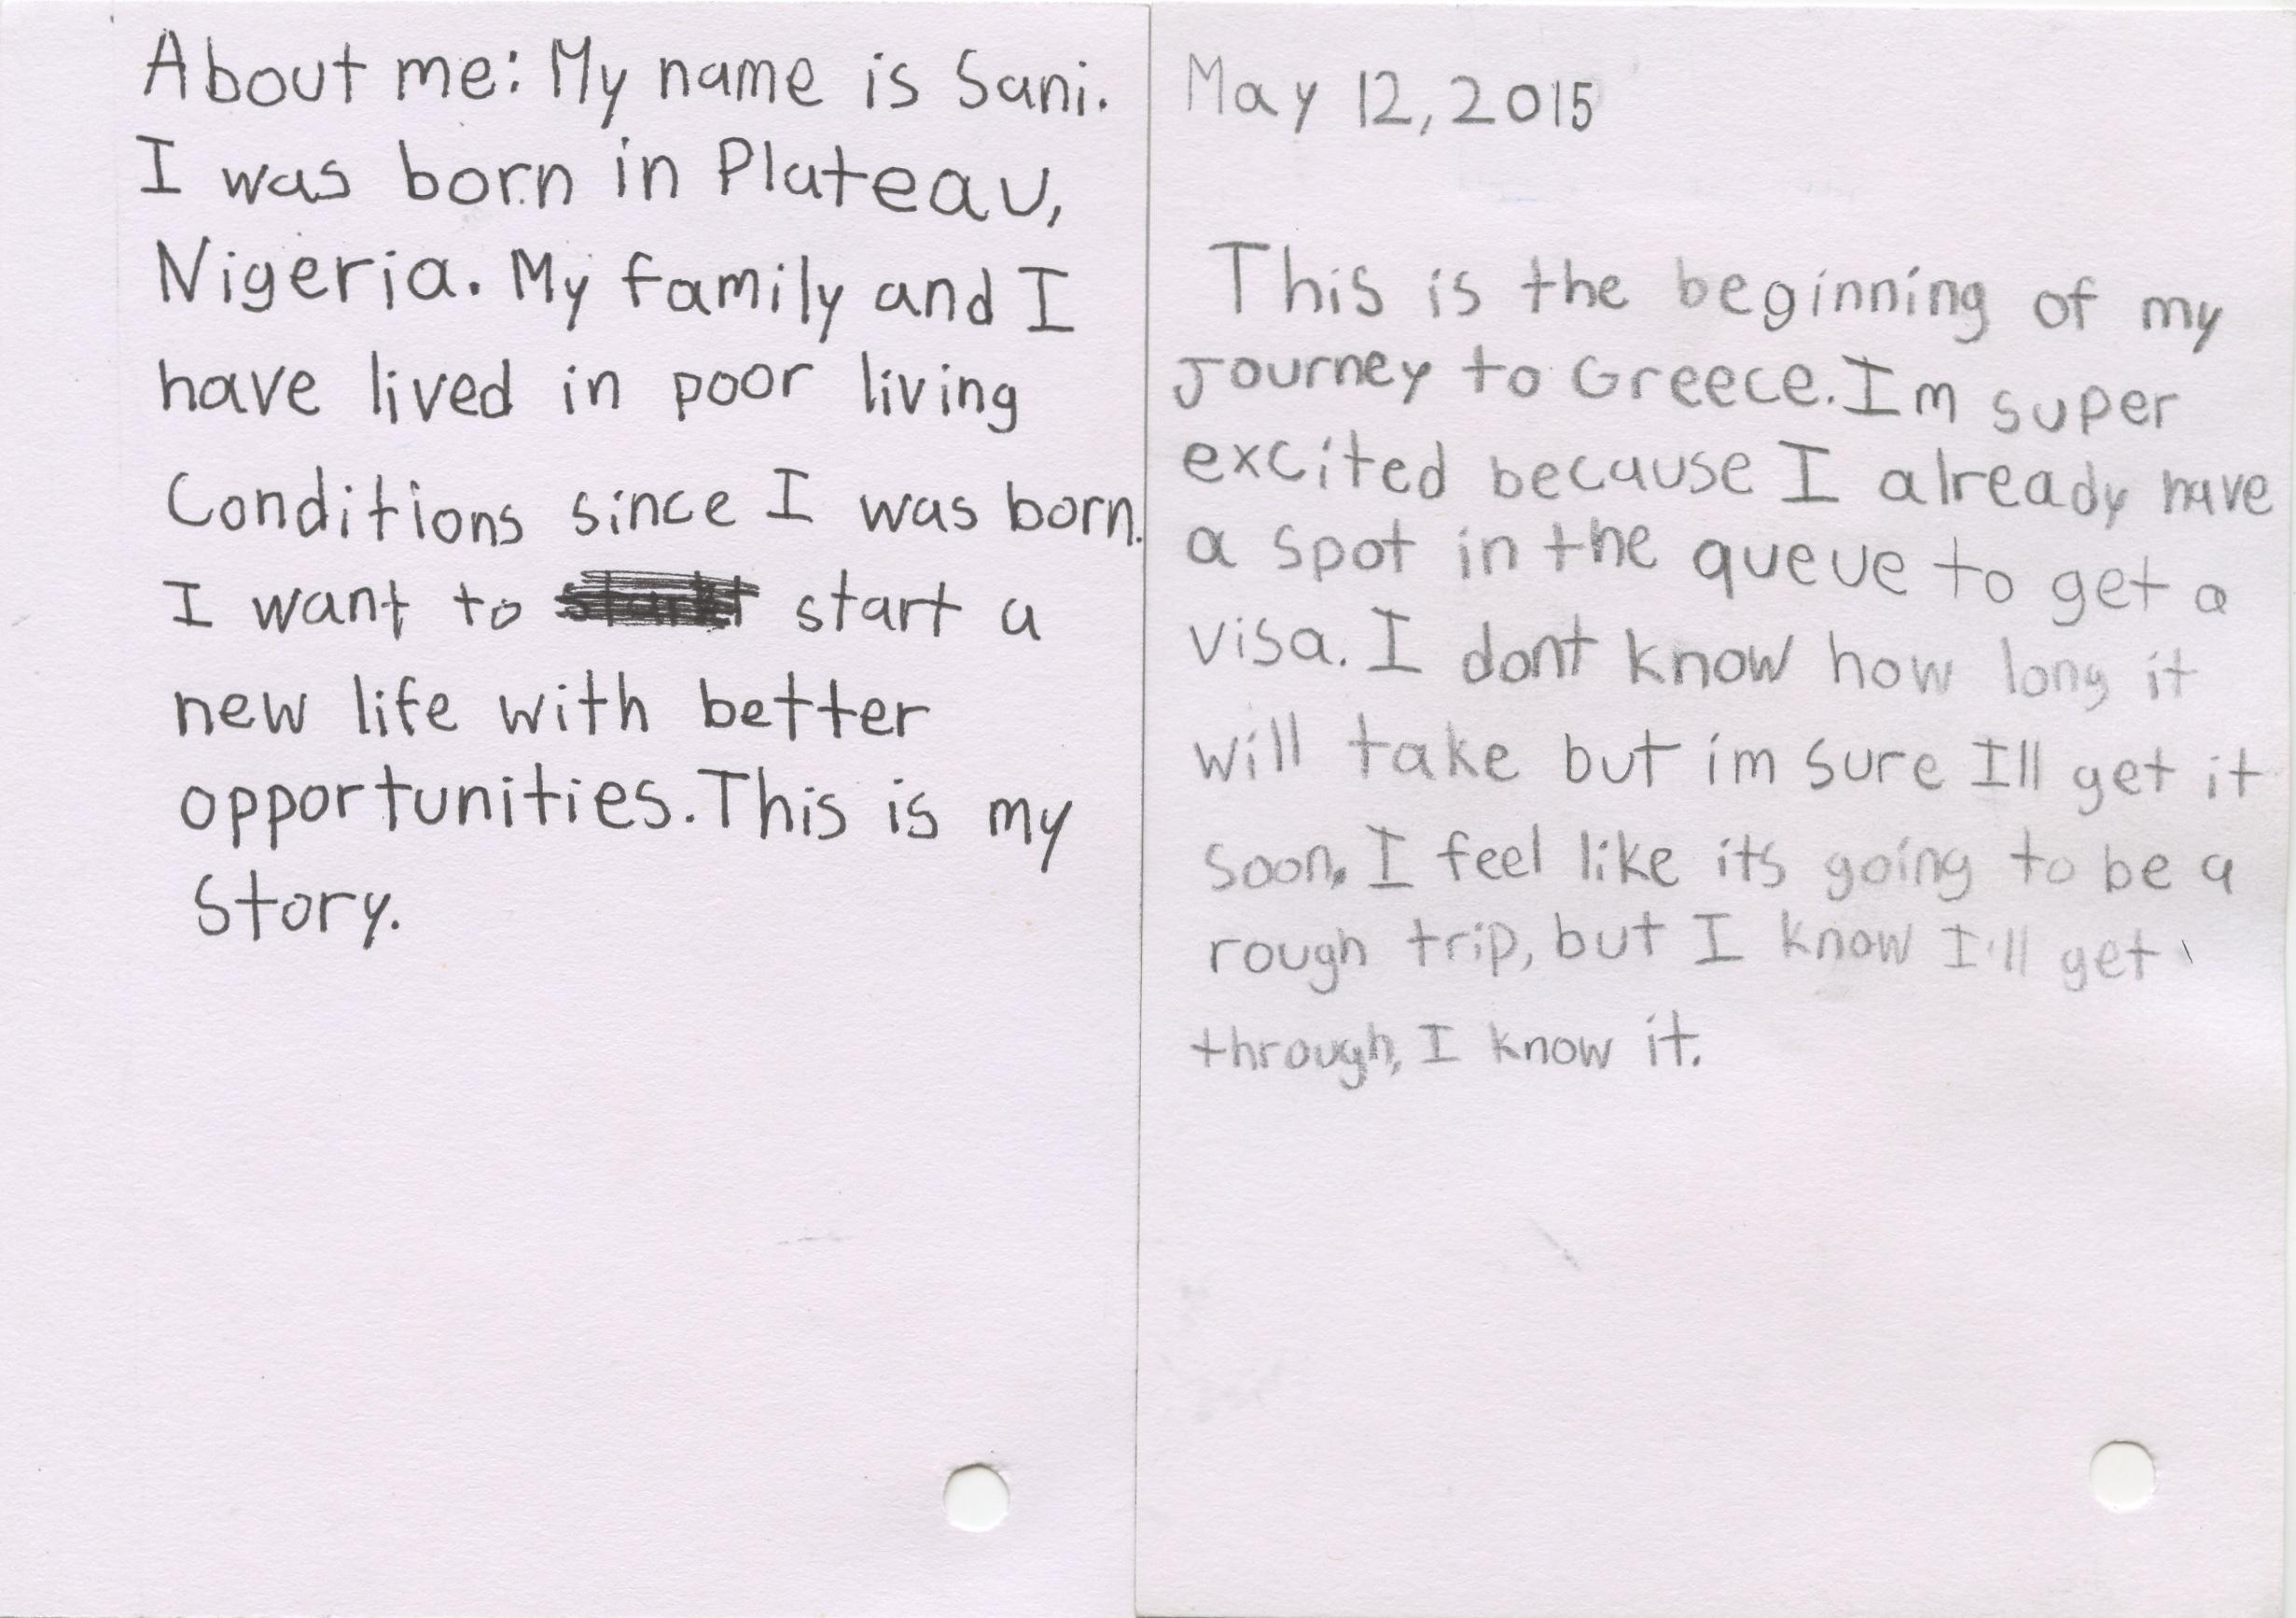 About me: My name is Sani.
I was born in Plateau,
Nigeria. My family and I
have lived in poor living
Conditions since I was born.
I want to start a
new life with better
opportunities. This is my
Story.
May 12, 2015
This is the beginning of my
Journey to Greece. Im super
excited because I already have
a spot in the queue to get a
visa. I dont know how long it
will take but im sure Ill get it
soon. I feel like its going to be a
rough trip, but I know I'll get
through, I know it.